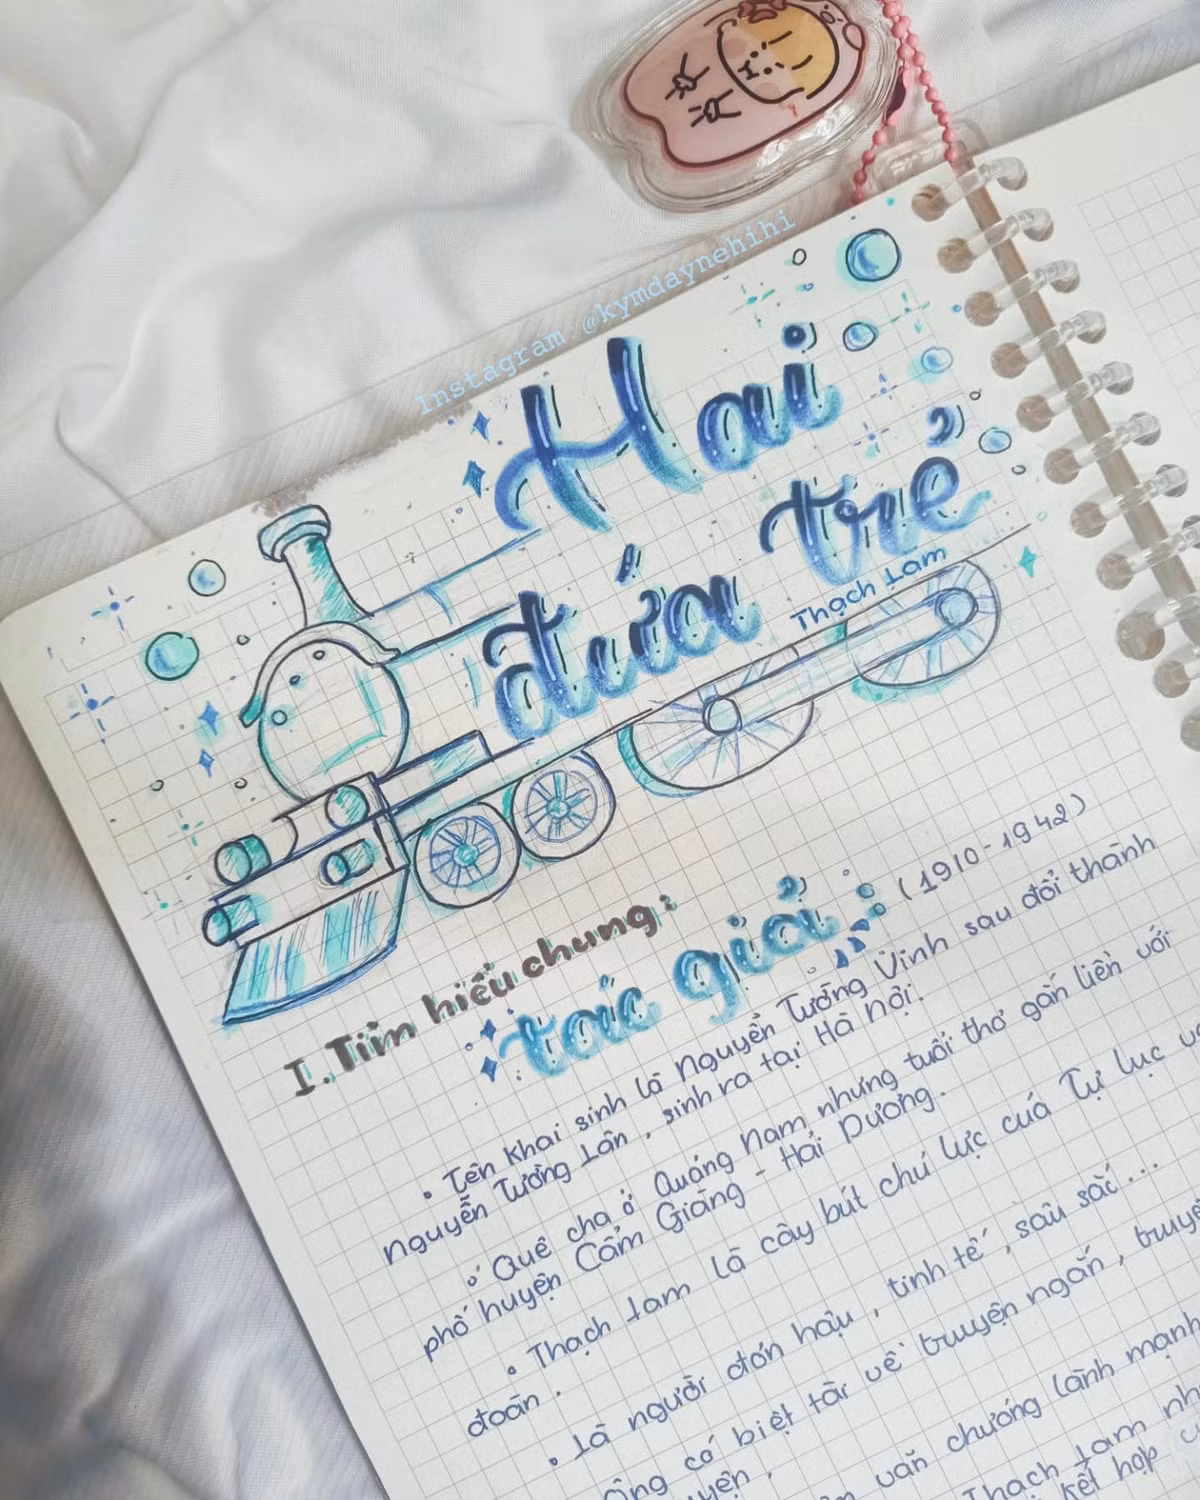 Instagram @kymdaynehihi
Hai
đứa trẻ
Thạch Lam
I. Tìm hiểu chung:
tác giả: (1910-1942)
• Tên khai sinh là Nguyễn Tường Vinh sau đổi thành
Nguyễn Tường Lân, sinh ra tại Hà Nội.
• Quê cha ở Quảng Nam nhưng tuổi thơ gắn liền với
phố huyện Cẩm Giàng - Hải Dương.
• Thạch Lam là cây bút chủ lực của Tự lực v
đoàn.
• Là người đôn hậu, tinh tế, sâu sắc...
Ông có biệt tài về truyện ngắn, truyệ
uyện.
văn chương lành mạnh
Thạch Lam nh
kết hợp